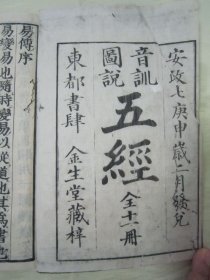 安政七庚申歳二月鐫兌
音訓
圖說
五經
全十一冊
東都書肆
金生堂藏梓
易傳序
易變易也隨時變易以從道也其爲書也